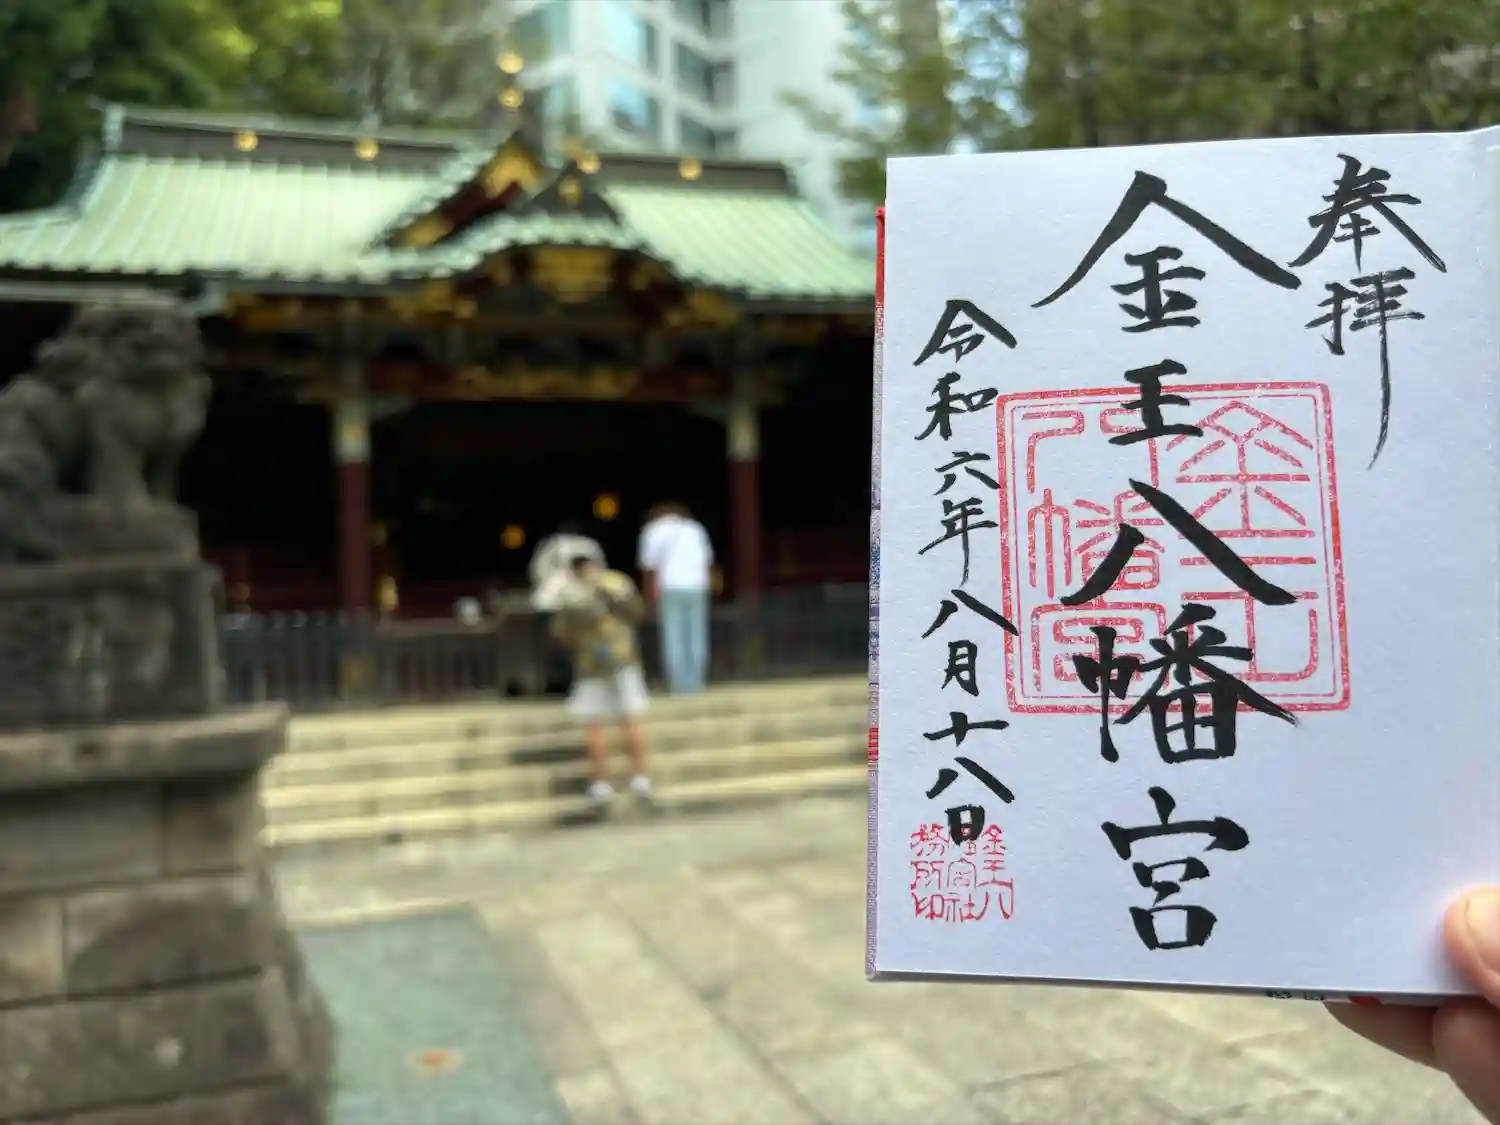 奉拝
金王八幡宮
令和六年八月十八日
金王八
幡宮社
務所印
金王
八幡宮